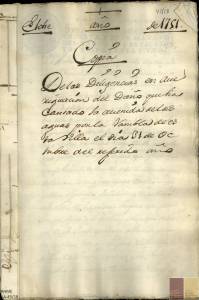 Elche año de 1751
Copia
De las Diligencias en Ave
riguacion del Daño que ha
Causado la avenida de las
aguas por la Rambla de es
ta Villa el dia 31 de Oc
tubre del referido año